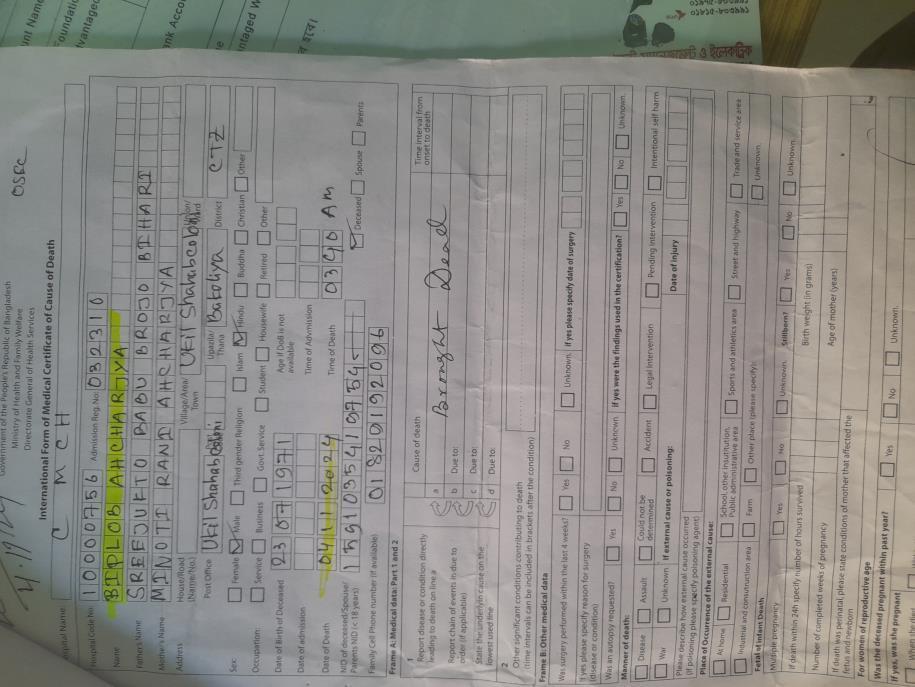 OSEC
Government of the People's Republic of Bangladesh
Ministry of Health and Family Welfare
Directorate General of Health Services
International Form of Medical Certificate of Cause of Death
Hospital Name: C M C H
Hospital Code No: 10000756 Admission Reg. No: 032310
Name BIPLOB AHCHARJYA
Father's Name SREEJUKTO BABU BROJO BIHARI
Mother's Name MINOTI RANI AHCHARJYA
Address House/Road (Name/No.) Village/Area/Town Ukil Shahabcoloni Union/Ward
Post Office Ukil Shahabcoloni Upazila/Thana Bakoliya District CTZ
Sex: Female Male Third gender Religion Islam Hindu Buddha Christian Other
Occupation: Service Business Govt. Service Student Housewife Retired Other
Date of Birth of Deceased 23071971 Age if DoB is not available
Date of admission Time of Admission
Date of Death 04112024 Time of Death 0340 AM
NID of deceased/Spouse/Parents NID (< 18 years) Deceased Spouse Parents
Family Cell Phone number (if available) 01820192096
Frame A: Medical data: Part 1 and 2
1 Cause of death Time interval from onset to death
Report disease or condition directly leading to death on line a a Brought Dead
Report chain of events in due to order (if applicable) b Due to:
c Due to:
State the underlying cause on the lowest used line d Due to:
2 Other significant conditions contributing to death (time intervals can be included in brackets after the condition)
Frame B: Other medical data
Was surgery performed within the last 4 weeks? Yes No Unknown If yes please specify date of surgery
If yes please specify reason for surgery (disease or condition)
Was an autopsy requested? Yes No Unknown If yes were the findings used in the certification? Yes No Unknown
Manner of death:
Disease Assault Could not be determined Accident Legal intervention Pending Intervention Intentional self harm
War Unknown If external cause or poisoning: Date of injury
Please describe how external cause occurred (If poisoning please specify poisoning agent)
Place of Occurrence of the external cause:
At home Residential School, other institution, Public administrative area Sports and athletics area Street and highway Trade and service area
Industrial and construction area Farm Other place (please specify): Unknown
Fetal or Infant Death
Multiple pregnancy Yes No Unknown Stillborn? Yes No Unknown
If death within 24h specify number of hours survived Birth weight (in grams)
Number of completed weeks of pregnancy Age of mother (years)
If death was perinatal, please state conditions of mother that affected the fetus and newborn
For women of reproductive age
Was the deceased pregnant within past year? Yes No Unknown
If yes, was she pregnant